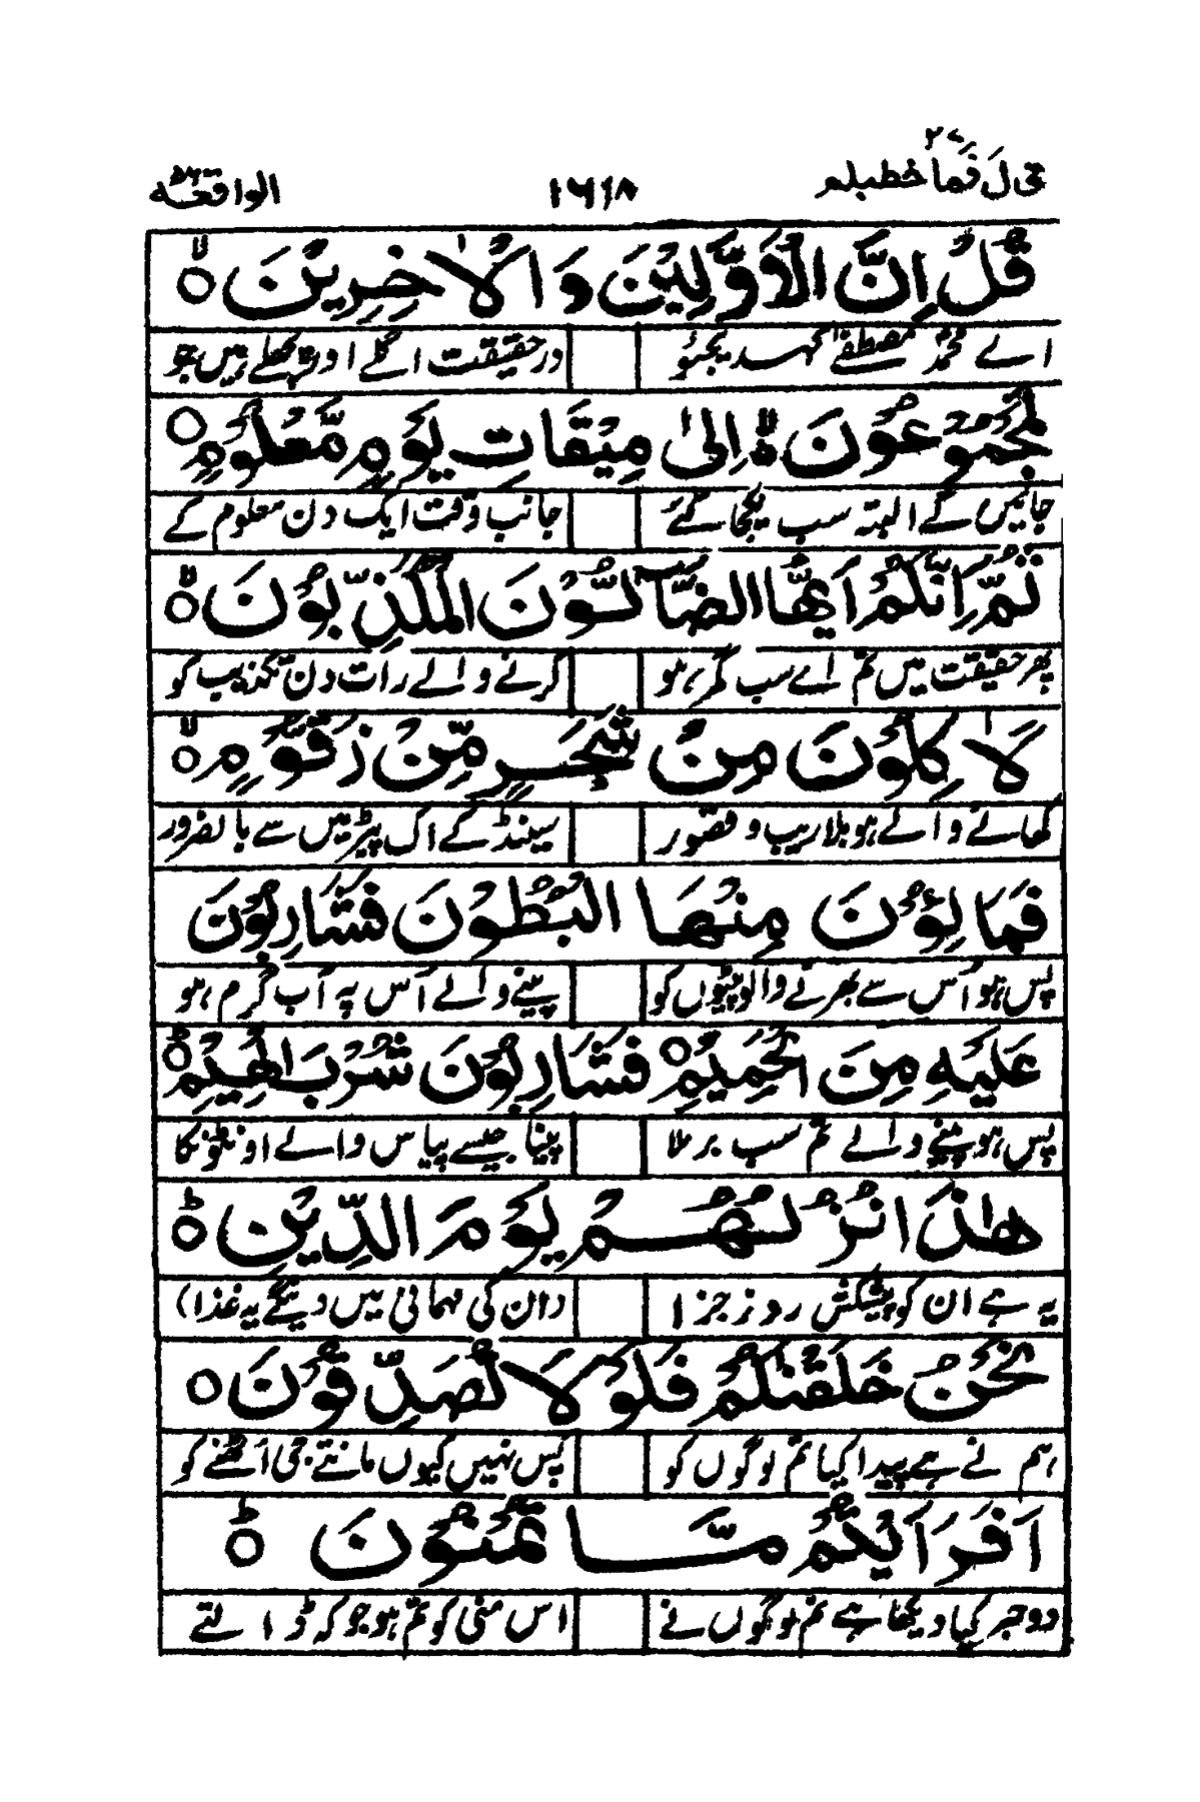 قَالَ فَمَا خَطْبُكُمْ ٢٧ ١٦١٨ الواقعة ٥٦
قُلْ اِنَّ الْاَوَّلِيْنَ وَالْاٰخِرِيْنَ ۙ
اے محمد مصطفےٰ کہہ دیجئو درحقیقت اگلے اور پچھلے ہیں جو
لَمَجْمُوْعُوْنَ ۙ اِلٰى مِيْقَاتِ يَوْمٍ مَّعْلُوْمٍ ○
جائیں گے البتہ سب یکجا کئے جانب وقت ایک دن معلوم کے
ثُمَّ اِنَّكُمْ اَيُّهَا الضَّآلُّوْنَ الْمُكَذِّبُوْنَ ۙ
پھر حقیقت میں تم اے سب گمرہو کرنے والے رات دن تکذیب کو
لَاٰكِلُوْنَ مِنْ شَجَرٍ مِّنْ زَقُّوْمٍ ۙ
کھانے والے ہو بلا ریب و قصور سینڈ کے اک پیڑ میں سے بالضرور
فَمَالِؤُنَ مِنْهَا الْبُطُوْنَ فَشَارِبُوْنَ
پس ہو اس سے بھرنے والو پیٹوں کو پینے والے اس پہ آب گرم ہو
عَلَيْهِ مِنَ الْحَمِيْمِ ○ فَشَارِبُوْنَ شُرْبَ الْهِيْمِ ؕ
پس ہو پینے والے تم سب برملا پینا جیسے پیاس والے اونٹونکا
هٰذَا نُزُلُهُمْ يَوْمَ الدِّيْنِ ؕ
یہ ہے ان کو پیشکش روز جزا (ان کی مہمانی میں دینگے یہ غذا)
نَحْنُ خَلَقْنٰكُمْ فَلَوْلَا تُصَدِّقُوْنَ ○
ہم نے ہے پیدا کیا تم لوگوں کو پس نہیں کیوں مانتے جی اٹھنے کو
اَفَرَاَيْتُمْ مَّا تُمْنُوْنَ ؕ
دو خبر کیا دیکھا ہے تم لوگوں نے اس منی کو تم ہو جو کہ ڈالتے